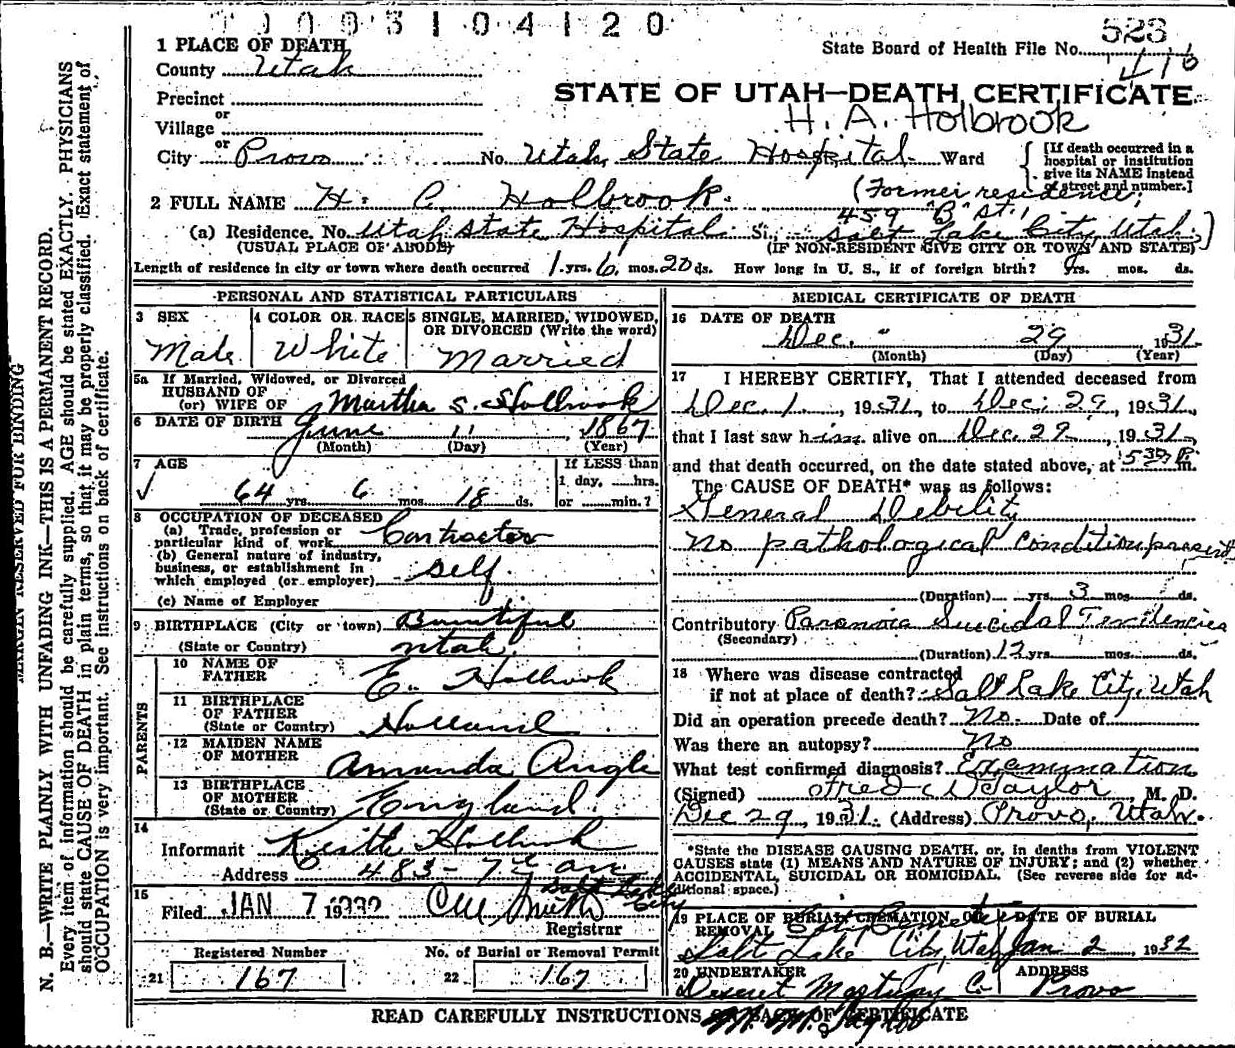 1 0 0 9 3 1 0 4 1 2 0
523
State Board of Health File No. 416
1 PLACE OF DEATH
County Utah
Precinct
or
Village
or
City Provo No. Utah State Hospital Ward
STATE OF UTAH—DEATH CERTIFICATE
H. A. Holbrook
[If death occurred in a hospital or institution give its NAME instead of street and number.]
2 FULL NAME H. C. Holbrook
(Former residence;
459 "B" St.,
(a) Residence. No. Utah State Hospital St., Salt Lake City, Utah.)
(USUAL PLACE OF ABODE) (IF NON-RESIDENT GIVE CITY OR TOWN AND STATE)
Length of residence in city or town where death occurred 1 yrs. 6 mos. 20 ds. How long in U. S., if of foreign birth? yrs. mos. ds.
PERSONAL AND STATISTICAL PARTICULARS
3 SEX
Male
4 COLOR OR RACE
White
5 SINGLE, MARRIED, WIDOWED, OR DIVORCED (Write the word)
Married
5a If Married, Widowed, or Divorced
HUSBAND OF
(or) WIFE OF Martha S. Holbrook
6 DATE OF BIRTH June 11, 1867
(Month) (Day) (Year)
7 AGE
64 yrs. 6 mos. 18 ds.
If LESS than
1 day, hrs.
or min.?
8 OCCUPATION OF DECEASED
(a) Trade, profession or particular kind of work Contractor
(b) General nature of industry, business, or establishment in which employed (or employer) self.
(c) Name of Employer
9 BIRTHPLACE (City or town) Bountiful
(State or Country) Utah.
PARENTS
10 NAME OF FATHER E. Holbrook
11 BIRTHPLACE OF FATHER (State or Country) Holland
12 MAIDEN NAME OF MOTHER Amanda Angle
13 BIRTHPLACE OF MOTHER (State or Country) England.
14
Informant Keith Holbrook
Address 483 - 7th av
Salt Lake City
15
Filed JAN 7 1932 Smith
Registrar
Registered Number
21 167
No. of Burial or Removal Permit
22 167
MEDICAL CERTIFICATE OF DEATH
16 DATE OF DEATH
Dec. 29 1931
(Month) (Day) (Year)
17 I HEREBY CERTIFY, That I attended deceased from
Dec. 1, 1931, to Dec. 29, 1931,
that I last saw him alive on Dec. 29, 1931,
and that death occurred, on the date stated above, at 5:30 P. m.
The CAUSE OF DEATH* was as follows:
General Debility
No pathological condition present
(Duration) yrs. 3 mos. ds.
Contributory Paranoia Suicidal Tendencies
(Secondary)
(Duration) 12 yrs. mos. ds.
18 Where was disease contracted
if not at place of death? Salt Lake City, Utah
Did an operation precede death? No. Date of
Was there an autopsy? No
What test confirmed diagnosis? Examination
(Signed) Fred W Taylor M. D.
Dec 29, 1931. (Address) Provo, Utah.
*State the DISEASE CAUSING DEATH, or, in deaths from VIOLENT CAUSES state (1) MEANS AND NATURE OF INJURY; and (2) whether ACCIDENTAL, SUICIDAL OR HOMICIDAL. (See reverse side for additional space.)
19 PLACE OF BURIAL, CREMATION, OR REMOVAL City Cemetery
Salt Lake City, Utah
DATE OF BURIAL
Jan 2, 1932
20 UNDERTAKER
Deseret Mortuary Co
ADDRESS
Provo
READ CAREFULLY INSTRUCTIONS ON BACK OF CERTIFICATE
MARGIN RESERVED FOR BINDING
N. B.—WRITE PLAINLY WITH UNFADING INK—THIS IS A PERMANENT RECORD.
Every item of information should be carefully supplied. AGE should be stated EXACTLY. PHYSICIANS
should state CAUSE OF DEATH in plain terms, so that it may be properly classified. Exact statement of
OCCUPATION is very important. See instructions on back of certificate.